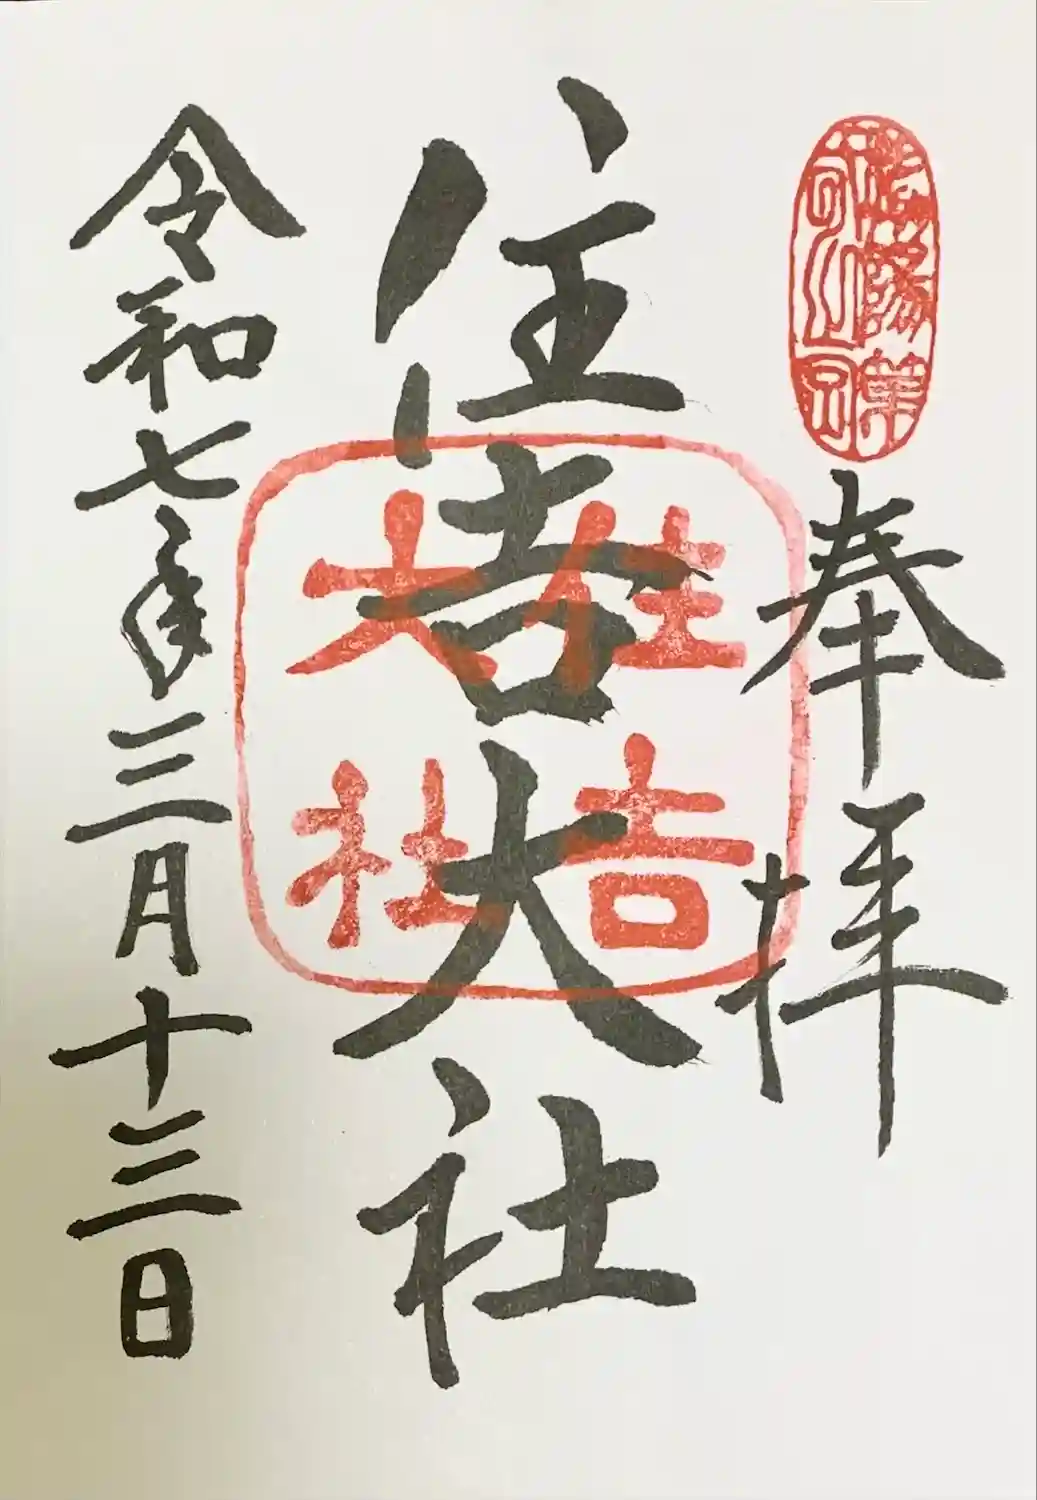 奉拝
住吉大社
住吉
大社
令和七年三月十三日